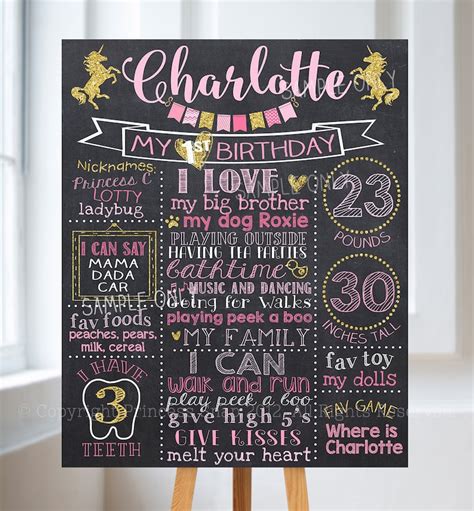 Charlotte
MY 1ST BIRTHDAY
Nicknames:
Princess C
LOTTY
ladybug
I CAN SAY
MAMA
DADA
CAR
fav foods
peaches, pears,
milk, cereal
I HAVE
3
TEETH
I LOVE
my big brother
my dog Roxie
PLAYING OUTSIDE
HAVING TEA PARTIES
bathtime
MUSIC AND DANCING
Going for Walks
playing peek a boo
MY FAMILY
I CAN
walk and run
play peek a boo
give high 5's
GIVE KISSES
melt your heart
23
POUNDS
30
INCHES TALL
fav toy
my dolls
FAV GAME
Where is
Charlotte
SAMPLE ONLY
SAMPLE ONLY
SAMPLE ONLY
© Copyright Princess 2012. All Rights